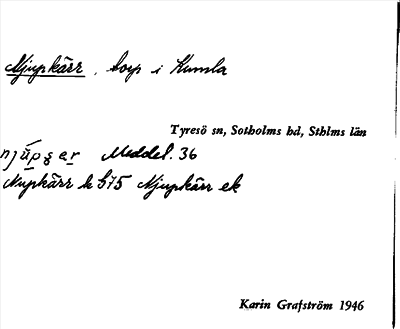 Njupkärr, torp i Kumla
Tyresö sn, Sotholms hd, Sthlms län
njúpꞩ er Meddel. 36
Nupkärr h 675 Njupkärr ek
Karin Grafström 1946